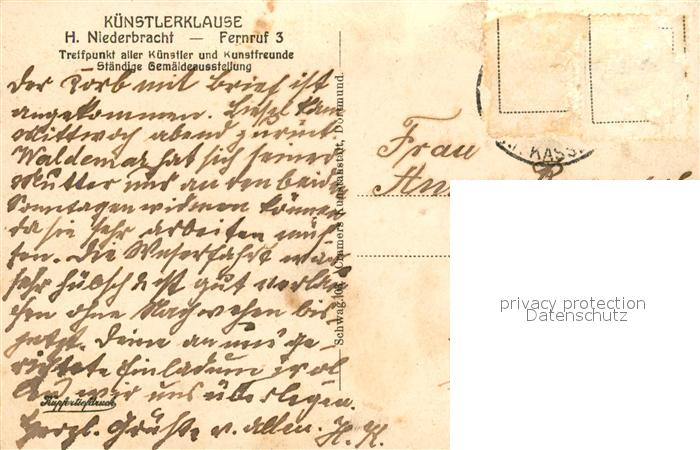 KÜNSTLERKLAUSE
H. Niederbracht — Fernruf 3
Treffpunkt aller Künstler und Kunstfreunde
Ständige Gemäldeausstellung
Der Korb mit Brief ist
angekommen. Liesel kam
Mittwoch abend zurück
Waldemar hat sich seiner
Mutter nur an den beiden
Sonntagen widmen können
da sie sehr arbeiten müs-
sen. Die Weserfahrt war
sehr hübsch & ist gut verlau-
fen ohne Nachwehen bis
jetzt. Deine an uns ge-
richtete Einladung
wir uns überlegen.
Herzl. Grüße v. allen. H. K.
Kupfertiefdruck
Cramers Kunstanstalt, Dortmund.
KASS
Frau
privacy protection
Datenschutz